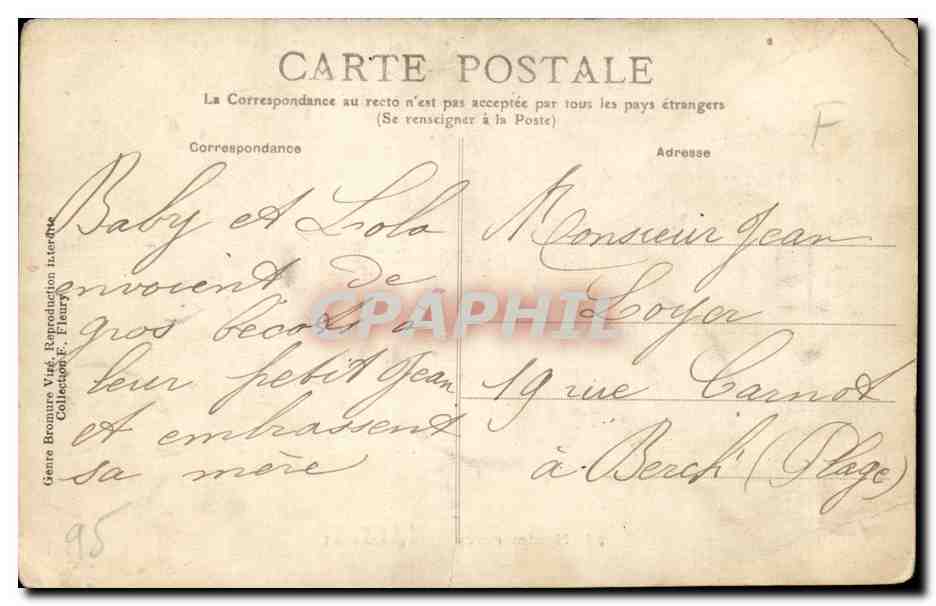 CARTE POSTALE
La Correspondance au recto n'est pas acceptée par tous les pays étrangers
(Se renseigner à la Poste)
F
Correspondance
Baby et Lolo
envoient de
gros bécots à
leur petit Jean
et embrassent
sa mère
Adresse
Monsieur Jean
Loyer
19 rue Carnot
à Berck (Plage)
Genre Bromure Viré, Reproduction interdite
Collection F. Fleury
CPAPHIL
95